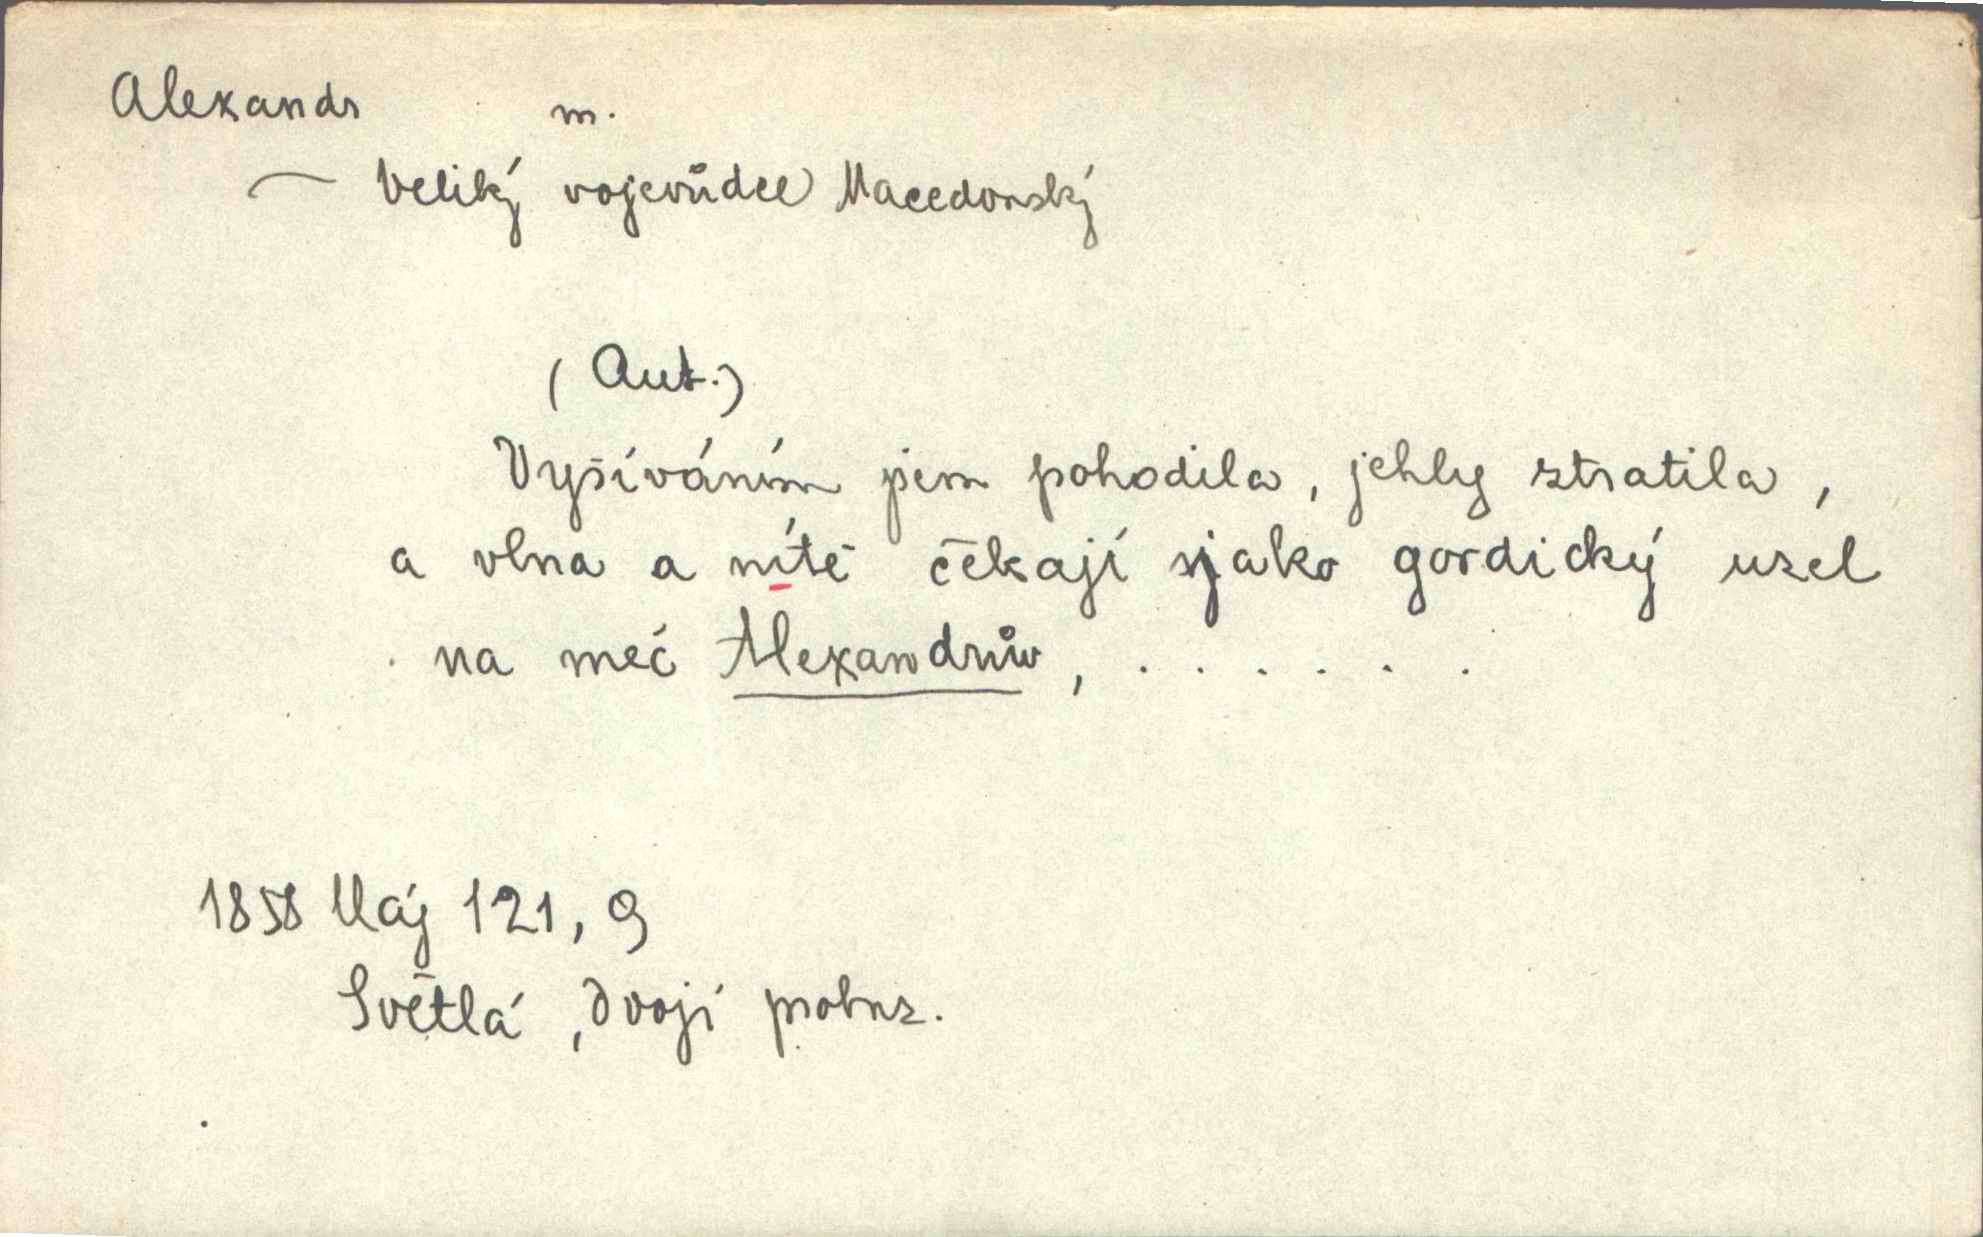 Alexandr m.
— Veliký vojevůdce Macedonský
(Aut.)
Vyšíváním jsem pohodila, jehly ztratila,
a vlna a nítě čekají jako gordický uzel
na meč Alexandrův, . . . . . .
1858 Máj 121, 9
Světlá, Dvojí probuz.